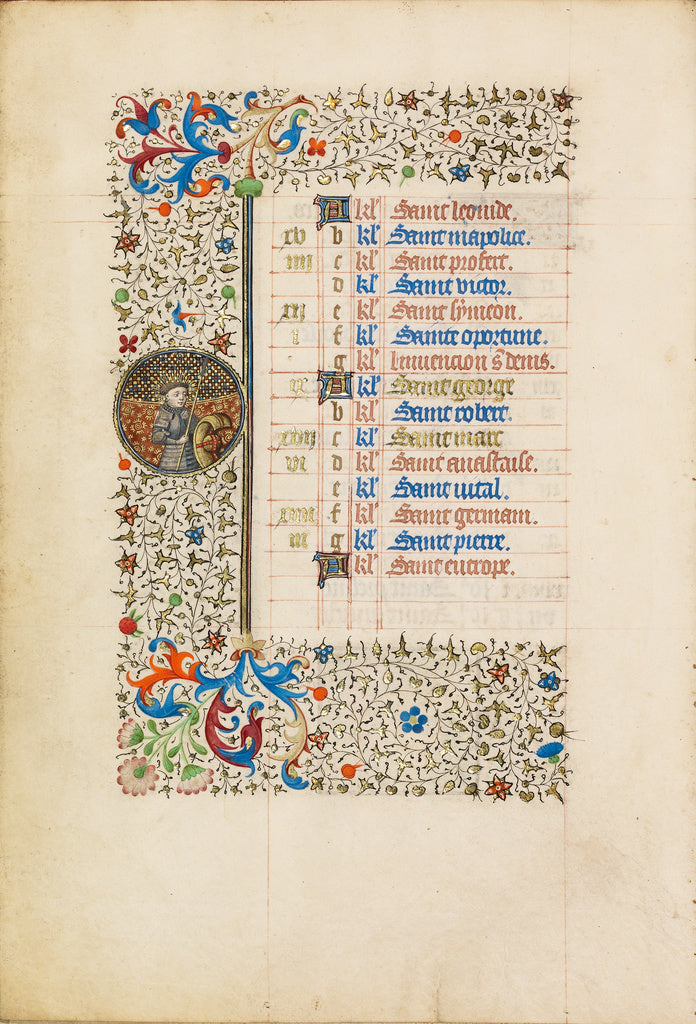 A kl' Saint leonide.
xv b kl' Saint mapolice.
iiii c kl' Saint profect.
d kl' Saint victor.
xii e kl' Saint symeon.
i f kl' Sainte oportune.
g kl' Linvencion s' denis.
ix A kl' Saint george
b kl' Saint robert.
xvii c kl' Saint marc
vi d kl' Saint anastaise.
e kl' Saint vital.
xiiii f kl' Saint germain.
iii g kl' Saint pierre.
A kl' Saint eutrope.